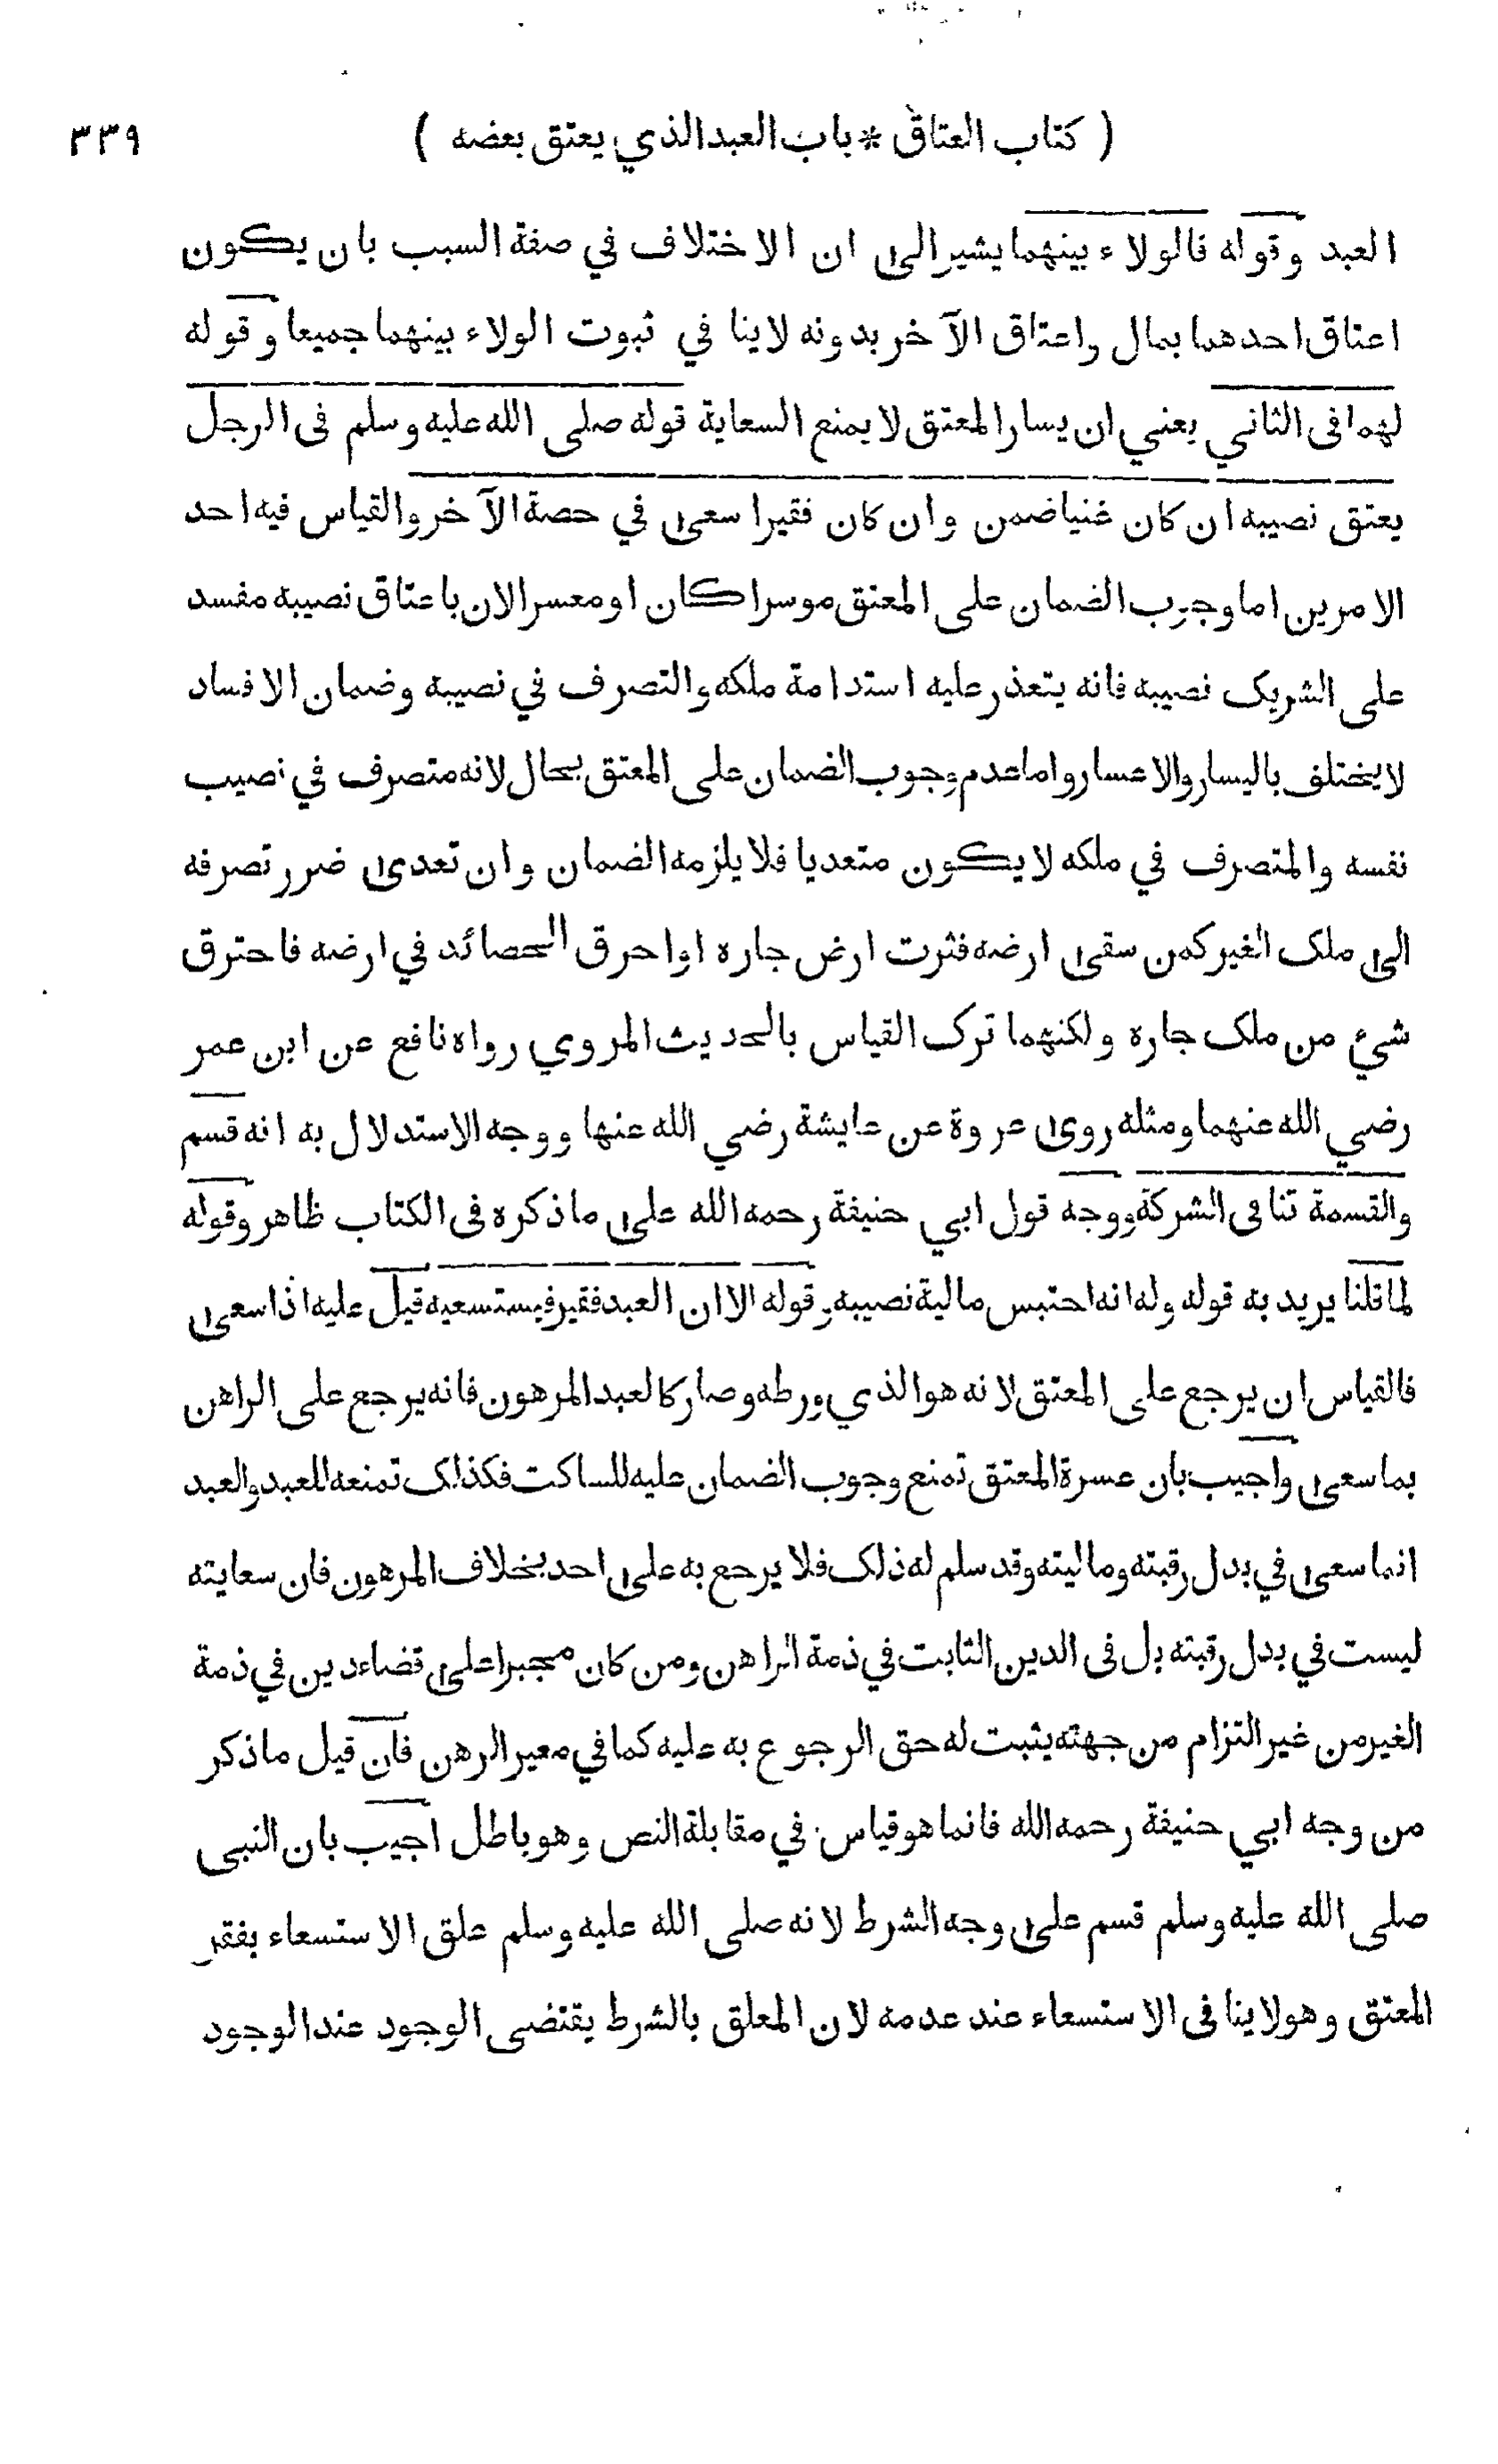 ( كتاب العتاق * باب العبد الذي يعتق بعضه ) ٣٣٩
العبد وقوله فالولاء بينهما يشير الى ان الاختلاف في صفة السبب بان يكون
اعتاق احدهما بمال واعتاق الآخر بدونه لاينافي ثبوت الولاء بينهما جميعا وقوله
لهما فى الثاني يعني ان يسار المعتق لا يمنع السعاية قوله صلى الله عليه وسلم فى الرجل
يعتق نصيبه ان كان غنيا ضمن وان كان فقيرا سعى في حصة الآخر والقياس فيه احد
الامرين اما وجوب الضمان على المعتق موسرا كان او معسرا لان باعتاق نصيبه مفسد
على الشريك نصيبه فانه يتعذر عليه استدامة ملكه والتصرف في نصيبه وضمان الافساد
لايختلف باليسار والاعسار واما عدم وجوب الضمان على المعتق بحال لانه متصرف في نصيب
نفسه والمتصرف في ملكه لا يكون متعديا فلا يلزمه الضمان وان تعدى ضرر تصرفه
الى ملك الغير كمن سقى ارضه فنزت ارض جاره او احرق الحصائد في ارضه فاحترق
شيء من ملك جاره ولكنهما ترك القياس بالحديث المروي رواه نافع عن ابن عمر
رضي الله عنهما ومثله روى عروة عن عايشة رضي الله عنها ووجه الاستدلال به انه قسم
والقسمة تنافى الشركة ووجه قول ابي حنيفة رحمه الله على ما ذكره فى الكتاب ظاهر وقوله
لما قلنا يريد به قوله وله انه احتبس مالية نصيبه وقوله الا ان العبد فقير فيستسعيه قيل عليه اذا سعى
فالقياس ان يرجع على المعتق لانه هو الذي ورطه وصار كالعبد المرهون فانه يرجع على الراهن
بما سعى واجيب بان عسرة المعتق تمنع وجوب الضمان عليه للساكت فكذلك تمنعه للعبد والعبد
انما سعى في بدل رقبته وماليته وقد سلم له ذلك فلا يرجع به على احد بخلاف المرهون فان سعايته
ليست في بدل رقبته بل فى الدين الثابت في ذمة الراهن ومن كان مجبرا على قضاء دين في ذمة
الغير من غير التزام من جهته يثبت له حق الرجوع به عليه كما في معير الرهن فان قيل ما ذكر
من وجه ابي حنيفة رحمه الله فانما هو قياس في مقابلة النص وهو باطل اجيب بان النبى
صلى الله عليه وسلم قسم على وجه الشرط لانه صلى الله عليه وسلم علق الاستسعاء بفقر
المعتق وهو لاينافى الاستسعاء عند عدمه لان المعلق بالشرط يقتضى الوجود عند الوجود